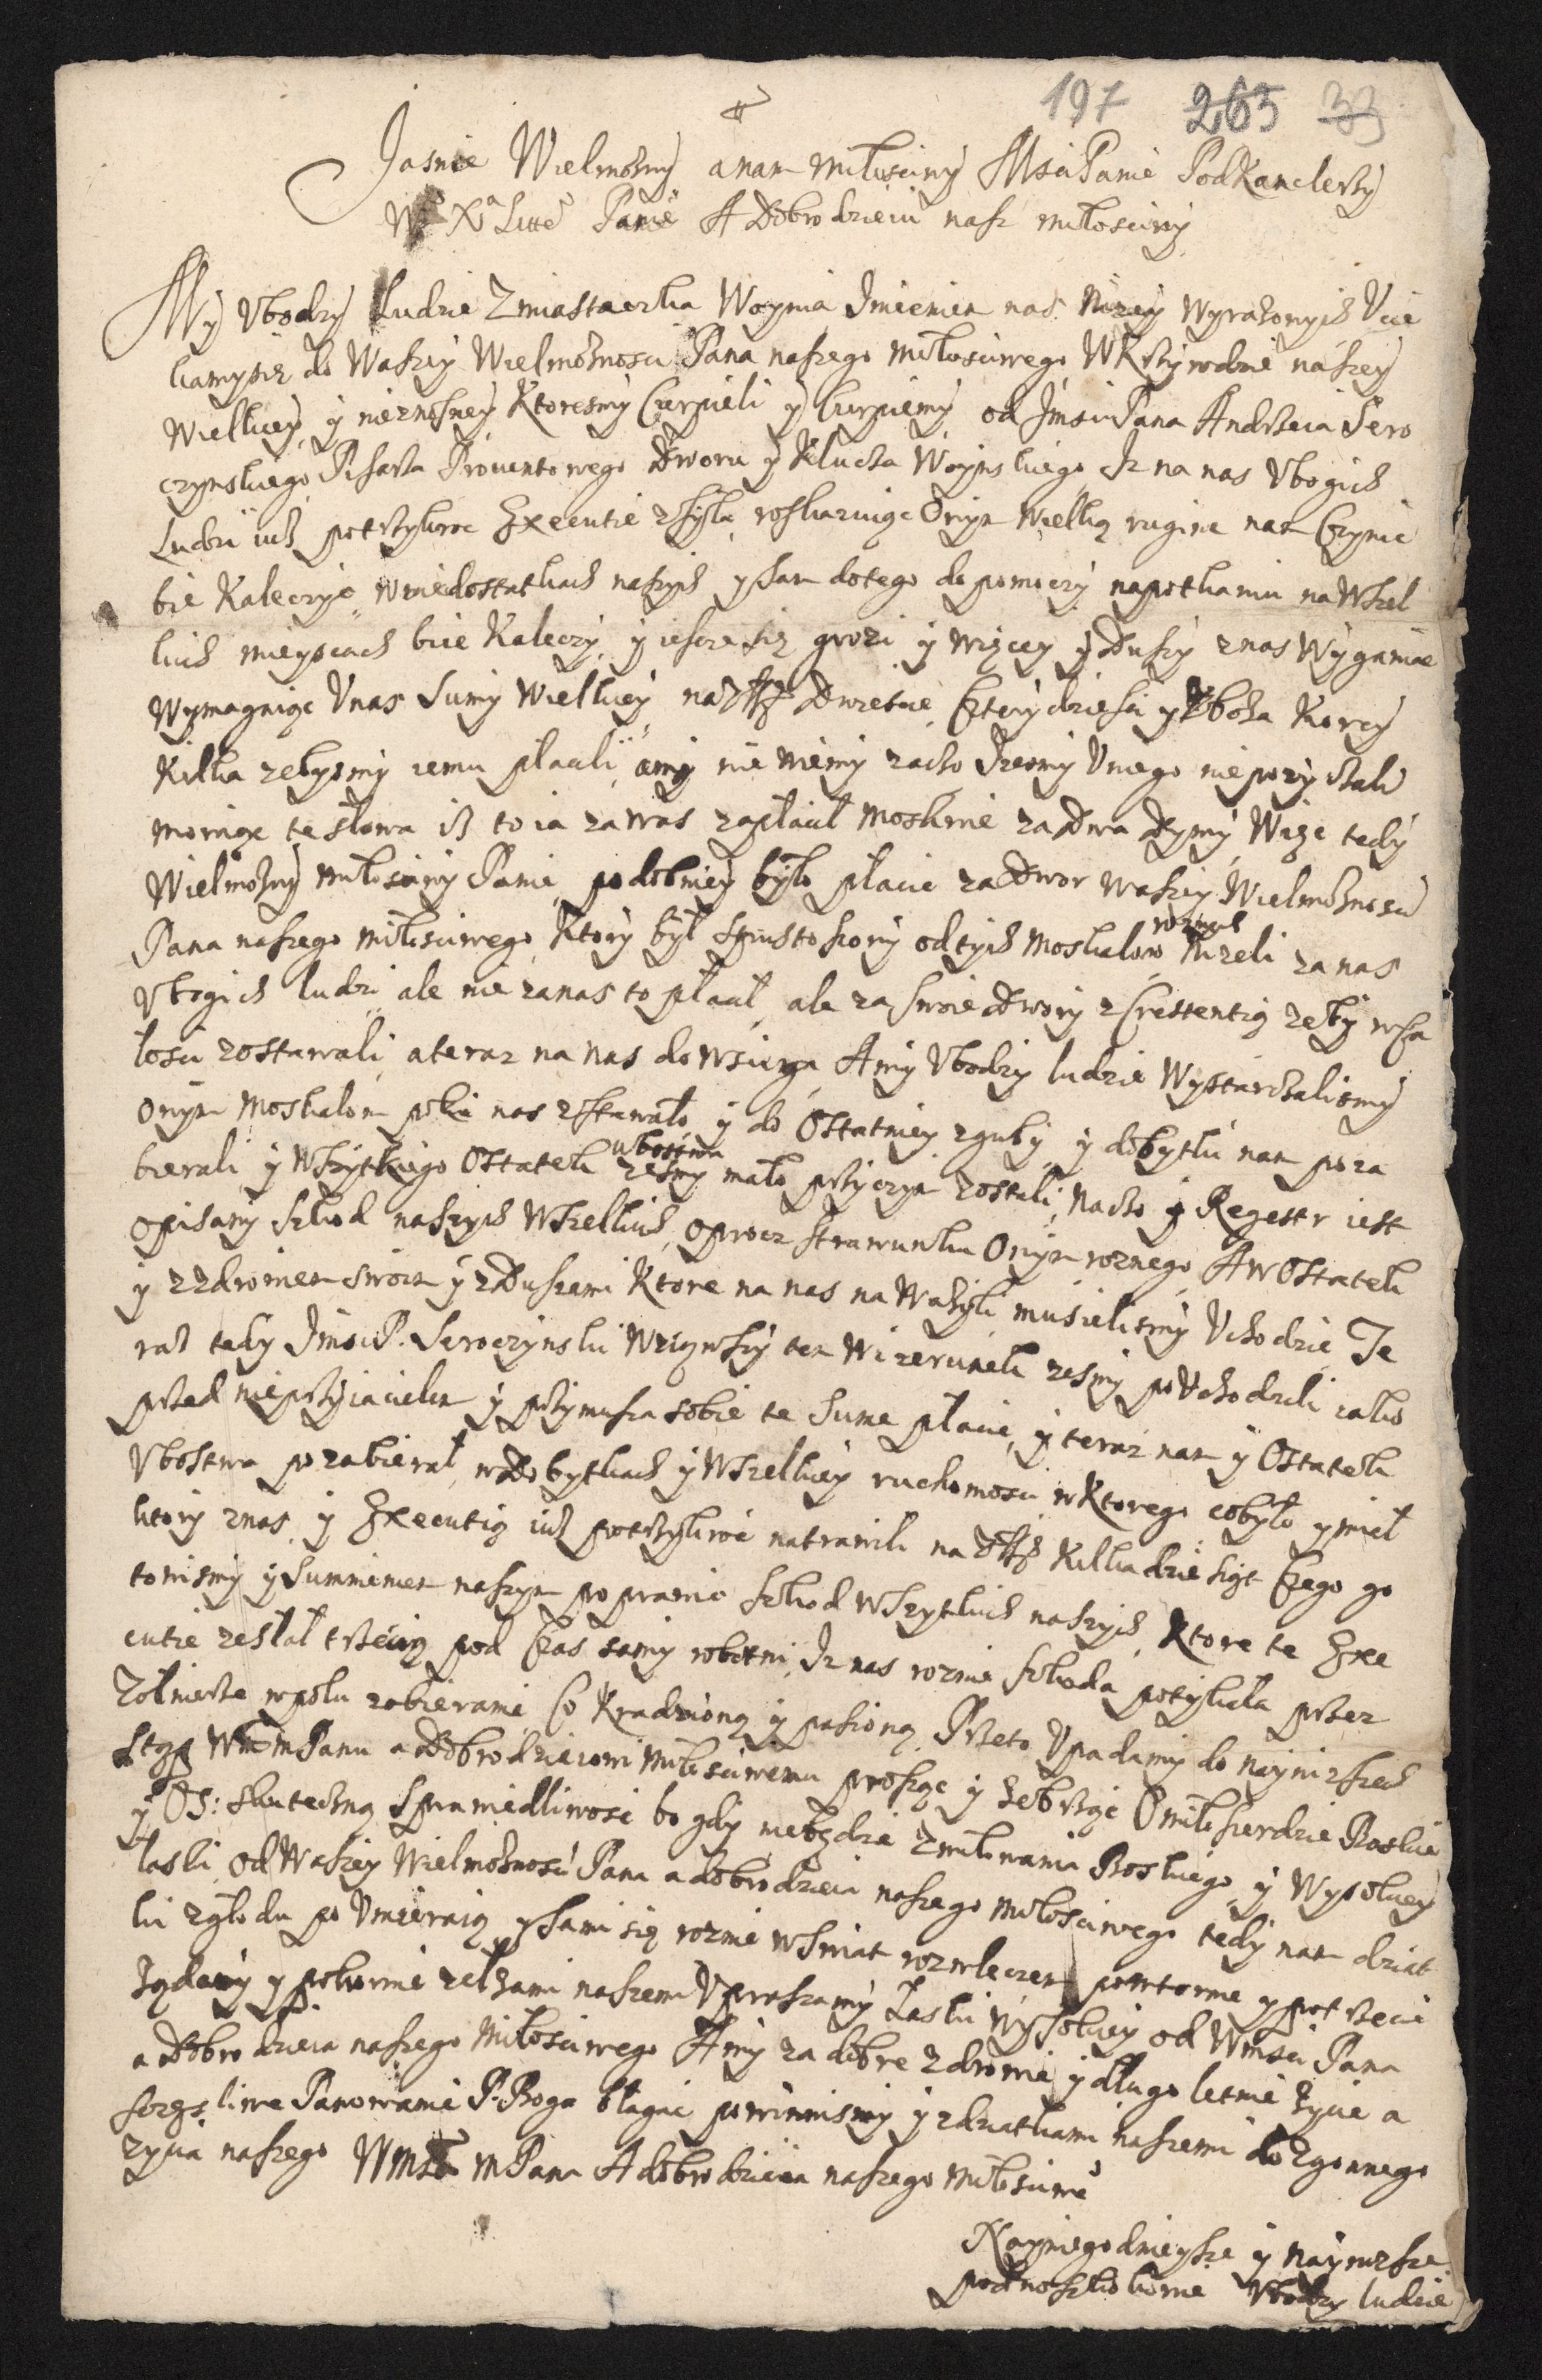 197 265 33
Jasnie Wielmożny a nam Miłosciwy Msci Panie PodKanclerzy
W° X° Litt° Panie A Dobrodzieiu nasz miłosciwy
My Vbodzy Ludzie Zmiasteczka Woynia Jmieniem nas Niżey wyrażonych Vcie
kamysię do Waszey Wielmożnosci Pana naszego Miłosciwego WKrzywdzie naszey
Wielkiey y nieznosney Ktoresmy Cierpieli y Cierpiemy od Jmsci Pana Andrzeia Sero
czynskiego Pisarza Prowentowego Dworu y Klucza Woynskiego Jz na nas Vbogich
Ludzi iuż potrzykroc Exekutie zsyła roskazuiąc Onym Wielką ruginę nam Czynic
bic Kaleczyc wniedostatkach naszych y sam dotego dopomoczy napotkaniu na Wszel
kich mieyscach biie Kaleczy y iescze się grozi y więcey y Duszy znas Wyganiac
Wymagaiąc Vnas Sumy Wielkiey na Zł Dwiescie Czterydziesci y Zboża Korcy
Kilka żebysmy iemu płacili amy nie wiemy zacżo Jżesmy Vniego niepozyczali
mowiąc te słowa iż to ia zawas zapłacił Moskwie zadwa Dymy Więc tedy
Wielmożny Miłosciwy Panie podobniey było płacic za Dwor Waszey Wielmożnosci
Pana naszego miłosciwego Ktory był spustoszony odtych Moskalow Niżeli zanas
Vbogich ludzi ale nie zanas to płacił ale za swoie Dwory z Crestentią żeby wca
łosci zostawali ateraz na nas dowsciąga Amy Vbodzy ludzie Wystarczalismy
Onym Moskalom poki nas zstawało y do Ostatniey zguby y dobytki nam poza
bierali y Wszytkiego Ostatek ubostwa żesmy mało przyczym zostali Naczo y Regestr iest
Opisany szkod naszych Wszelkich oprocz strawunku Onym roznego A w Ostatek
y zzdrowiem swoim y zDuszami Ktore na nas na Ważyli musielismy Vchodzic Te
raz tedy Jmsci P. Seroczynski Wziąwszy ten Wizerunek żesmy poVchodzili iako
przed nieprzyiacielem y przymusza sobie te Sume płacic y teraz nam y Ostatek
Vbostwa pozabierał wDobytkach y Wszelkiey ruchomosci wKtorego cobyło ymiał
ktory znas y Exekutią iuż potrzykroc natrawili na Zł Kilkadziesiąt Czego go
towismy y Summieniem naszym poprawic szkod Wszytkich naszych Ktore te Exe
cutie zesłał trzecią pod Czas samy robotni Jz nas rozmie szkoda potykała przez
Zołnierze wpolu zabieranie Co Kradzioną y paszoną Przeto Vpadamy do nayniższich
stop Wmm Panu a Dobrodzieiowi Miłosciwemu prosząc y żebrząc O miłosierdzie Boskie
y OS: skuteczną sprawiedliwosc bo gdy niebędzie Zmiłowania Boskiego y Wysokiey
łaski od Waszey Wielmożnosci Pana a dobrodzieia naszego Miłosciwego tedy nam dziat
ki zgłodu po Vmieraią ysami się rozmie wswiat rozwleczem powtorne ypotrzecie
żądamy y pokornie zełzami naszemi Vpraszamy Łaski wysokiey od Wmsci Pana
a Dobrodzieia naszego Miłosciwego Amy za dobre zdrowie y długo letnie życie a
szczęsliwe Panowanie P. Boga błagac powinnismy y zdziatkami naszemi do Zgonnego
życia naszego Wmsc mPana A dobrodzieia naszego Miłosciwe°
Nayniegodnieysze y Nayniższe
podnoszkowie Vbodzy ludzie